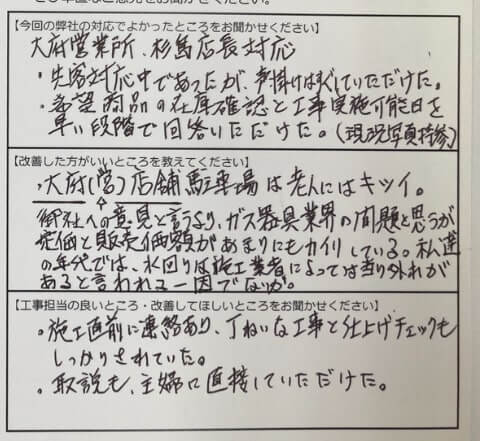 【今回の弊社の対応でよかったところをお聞かせください】
大府営業所、杉島店長対応
・先客対応中であったが、声掛けはすぐしていただけた。
・希望商品の在庫確認と工事実施可能日を
早い段階で回答いただけた。(現況写真持参)
【改善した方がいいところを教えてください】
・大府(営)店舗駐車場は老人にはキツイ。
御社への意見と言うより、ガス器具業界の問題と思うが
定価と販売価額があまりにもカイリしている。私達
の年代では、水回りは施工業者によっては当り外れが
あると言われる一因ではないか。
【工事担当の良いところ・改善してほしいところをお聞かせください】
。施工直前に連絡あり、丁ねいな工事と仕上げチェックも
しっかりされていた。
。取説も、主婦に直接していただけた。